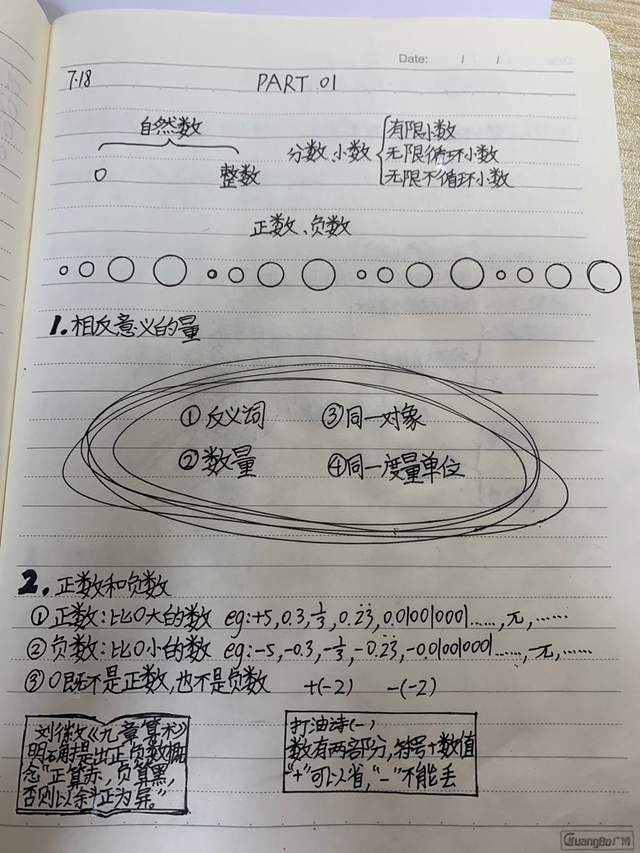 Date: / /
7.18 PART 01
自然数
0 整数
分数、小数
有限小数
无限循环小数
无限不循环小数
正数、负数
1.相反意义的量
①反义词 ③同一对象
②数量 ④同一度量单位
2.正数和负数
①正数:比0大的数 eg:+5,0.3,1/3,0.2̇3̇,0.010010001……,元,……
②负数:比0小的数 eg:-5,-0.3,-1/3,-0.2̇3̇,-0.010010001……,-元,……
③0既不是正数,也不是负数 +(-2) -(-2)
刘徽《九章算术》
明确提出正负数概
念“正算赤,负算黑,
否则以斜正为异。”
打油诗(一)
数有两部分,符号+数值
“+”可以省,“-”不能丢
GuangBo广博